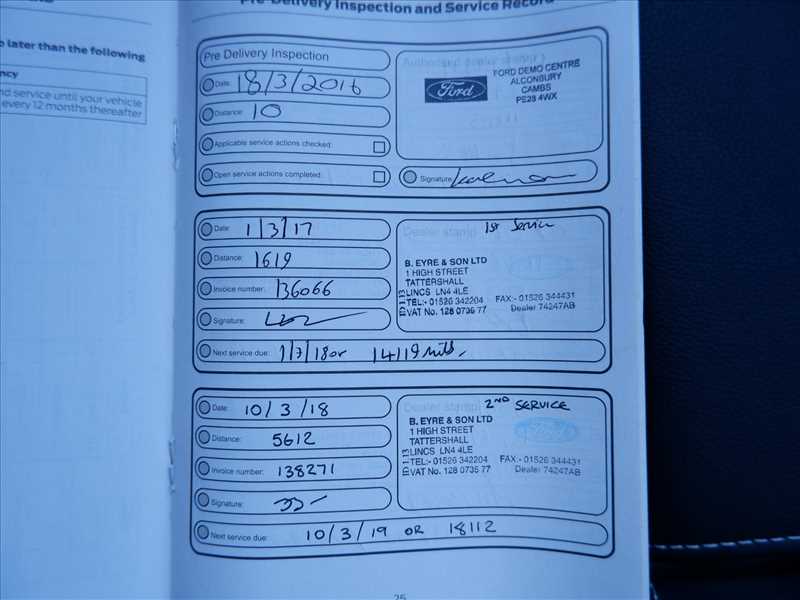 o later than the following
ncy
nd service until your vehicle
every 12 months thereafter
Pre-Delivery Inspection and Service Record
Pre Delivery Inspection
Date: 18/3/2016
Distance: 10
Applicable service actions checked:
Open service actions completed:
Authorised dealer stamp
Ford
FORD DEMO CENTRE
ALCONBURY
CAMBS
PE28 4WX
Signature:
Date: 1/3/17
Distance: 1619
Invoice number: 136066
Signature:
Next service due: 1/3/18 or 14119 Miles.
Dealer stamp
1st Service
B. EYRE & SON LTD
1 HIGH STREET
TATTERSHALL
LINCS LN4 4LE
TEL:- 01526 342204 FAX:- 01526 344431
VAT No. 128 0736 77 Dealer 74247AB
Date: 10/3/18
Distance: 5612
Invoice number: 138271
Signature:
Next service due: 10/3/19 OR 18112
Dealer stamp
2ND SERVICE
B. EYRE & SON LTD
1 HIGH STREET
TATTERSHALL
LINCS LN4 4LE
TEL:- 01526 342204 FAX:- 01526 344431
VAT No. 128 0736 77 Dealer 74247AB
25